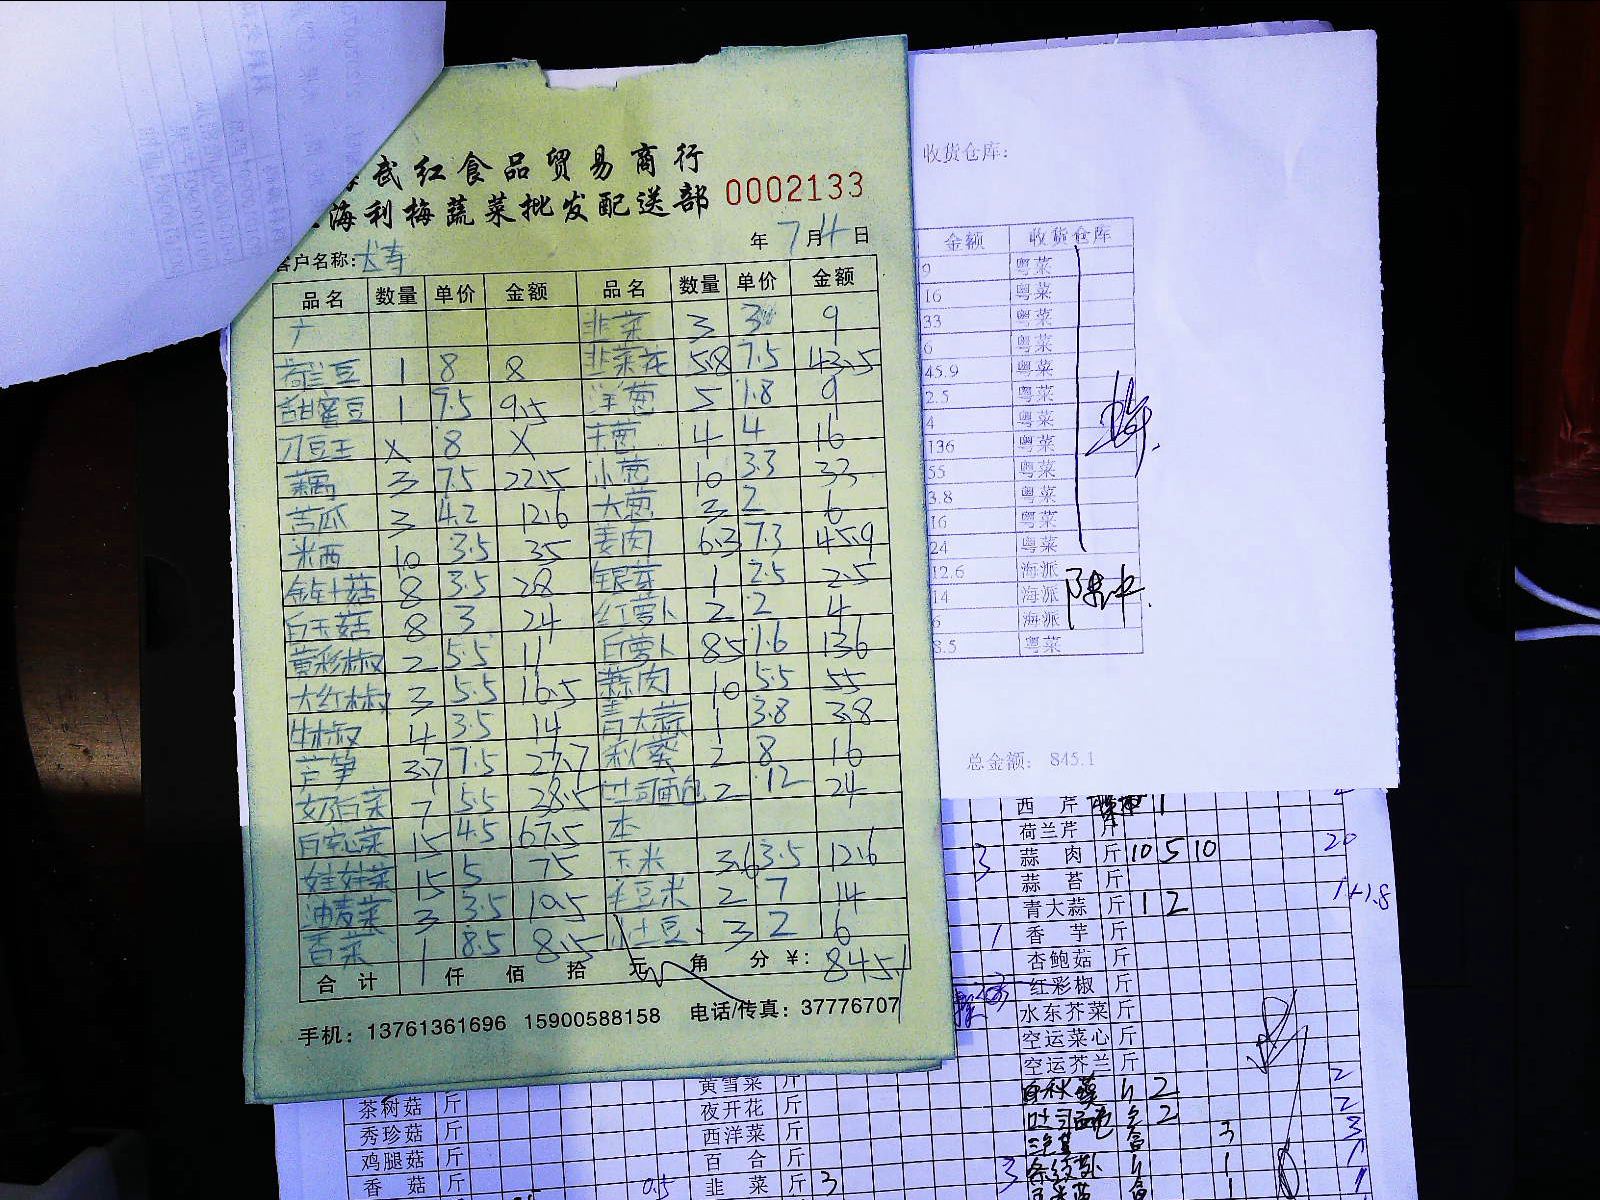 武红食品贸易商行
海利梅蔬菜批发配送部 0002133
年 7月4日
客户名称:大寿
品名 数量 单价 金额 品名 数量 单价 金额
广 韭菜 3 3 9
荷兰豆 1 8 8 韭菜花 5.8 7.5 43.5
甜蜜豆 1 9.5 9.5 洋葱 5 1.8 9
刀豆王 X 8 X 葱 4 4 16
藕 3 7.5 22.5 小葱 10 3.3 33
苦瓜 3 4.2 12.6 大葱 3 2 6
米西 10 3.5 35 姜肉 6.3 7.3 45.9
金针菇 8 3.5 28 银芽 1 2.5 2.5
白玉菇 8 3 24 红萝卜 2 2 4
黄彩椒 2 5.5 11 白萝卜 85 1.6 136
大红椒 3 5.5 16.5 蒜肉 10 5.5 55
牛椒 4 3.5 14 青大蒜 1 3.8 3.8
芦笋 3.7 7.5 27.7 秋葵 2 8 16
奶白菜 7 5.5 38.5 吐司面包 2 12 24
白菜 15 4.5 67.5 本
娃娃菜 15 5 75 玉米 3.6 3.5 12.6
油麦菜 3 3.5 10.5 毛豆米 2 7 14
香菜 1 8.5 8.5 小土豆 3 2 6
合计 仟 佰 拾 元 角 分 ¥: 845.1
手机: 13761361696 15900588158 电话/传真: 37776707
收货仓库:
金额 收货仓库
9 粤菜
16 粤菜
33 粤菜
6 粤菜
45.9 粤菜
2.5 粤菜
4 粤菜
136 粤菜
55 粤菜
3.8 粤菜
16 粤菜
24 粤菜
12.6 海派
14 海派
6 海派
8.5 粤菜
总金额: 845.1
西芹 斤 1
荷兰芹 斤
3 蒜肉 斤 10 5 10 20
蒜苔 斤
青大蒜 斤 1 2 1+1.8
1 香芋 斤
杏鲍菇 斤
红彩椒 斤
水东芥菜 斤
空运菜心 斤
空运芥兰 斤
黄雪菜 斤
茶树菇 斤 夜开花 斤
秀珍菇 斤 西洋菜 斤
鸡腿菇 斤 百合 斤
香菇 斤 0.5 韭菜 斤 3
秋葵 2 2
吐司面包 2 2
3 3
3 1 1
1 1